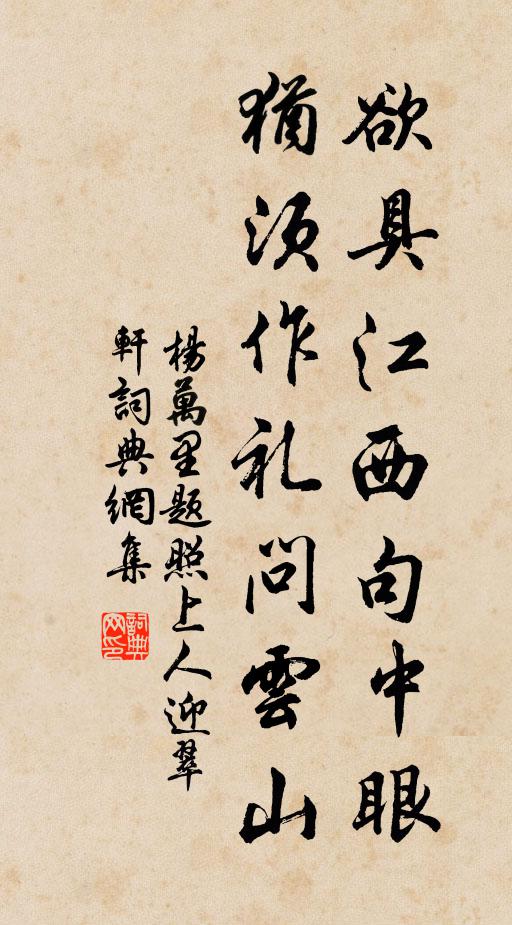 欲具江西句中眼
猶須作礼問雲山
楊萬里題照上人迎翠
軒詞典網集
詞典网印